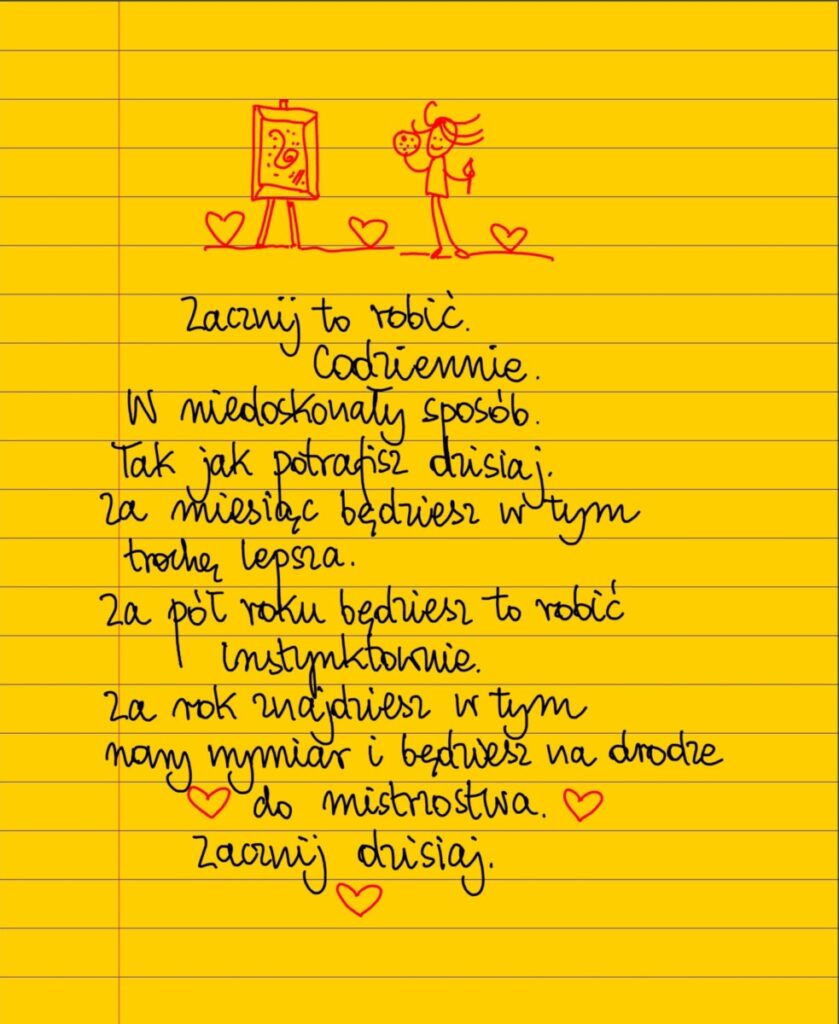 Zacznij to robić.
Codziennie.
W niedoskonały sposób.
Tak jak potrafisz dzisiaj.
Za miesiąc będziesz w tym
trochę lepsza.
Za pół roku będziesz to robić
instynktownie.
Za rok znajdziesz w tym
nowy wymiar i będziesz na drodze
do mistrzostwa.
Zacznij dzisiaj.